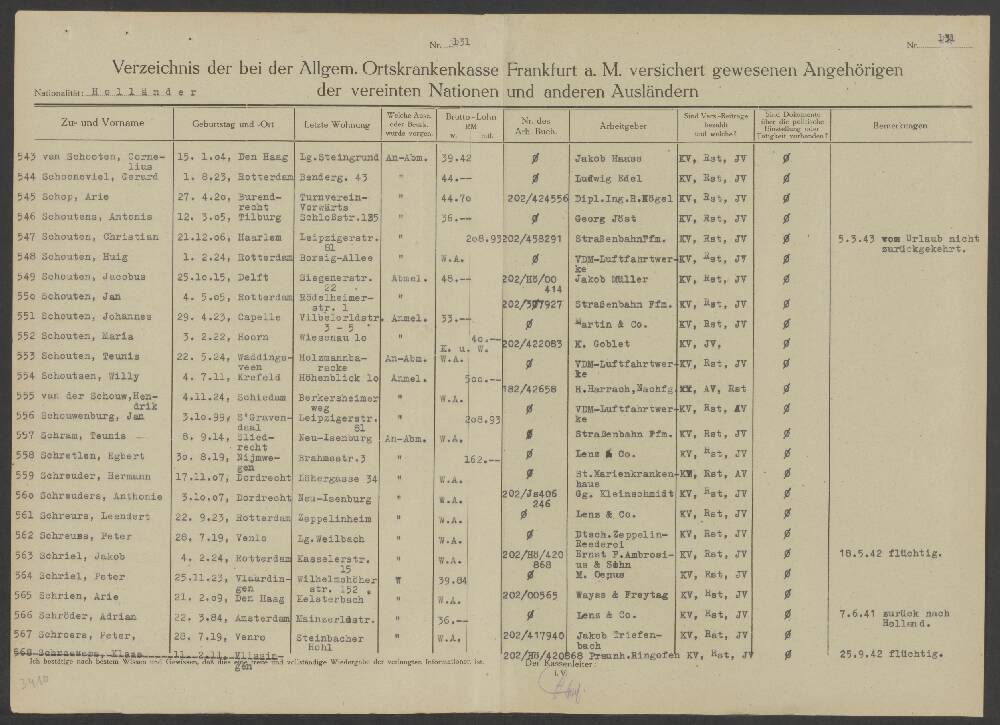 Nr. 131
Nr. 131
Verzeichnis der bei der Allgem. Ortskrankenkasse Frankfurt a. M. versichert gewesenen Angehörigen
Nationalität: Holländer
der vereinten Nationen und anderen Ausländern
Zu- und Vorname Geburtstag und -Ort Letzte Wohnung Welche Ausw. oder Besch. wurde vorgen. Brutto-Lohn RM w. mtl. Nr. des Arb. Buch. Arbeitgeber Sind Vers.-Beiträge bezahlt und welche? Sind Dokumente über die politische Einstellung oder Tätigkeit vorhanden? Bemerkungen
543 van Schooten, Corne- 15. 1.04, Den Haag Lg.Steingrund An-Abm. 39.42 Ø Jakob Haass KV, Rst, JV Ø
lius
544 Schooneviel, Gerard 1. 8.23, Rotterdam Benderg. 43 " 44.-- Ø Ludwig Edel KV, Rst, JV Ø
545 Schop, Arie 27. 4.20, Burend- Turnverein- " 44.70 202/424556 Dipl.Ing.R.Kögel KV, Rst, JV Ø
recht Vorwärts
546 Schoutens, Antonis 12. 3.05, Tilburg Schloßstr.125 " 36.-- Ø Georg Jöst KV, Rst, JV Ø
547 Schouten, Christian 21.12.06, Haarlem Leipzigerstr. " 208.93 202/458291 StraßenbahnFfm. KV, Rst, JV Ø 5.3.43 vom Urlaub nicht
81 zurückgekehrt.
548 Schouten, Huig 1. 2.24, Rotterdam Borsig-Allee " W.A. Ø VDM-Luftfahrtwer- KV, Rst, JV Ø
ke
549 Schouten, Jacobus 25.10.15, Delft Siegenerstr. Abmel. 48.-- 202/Hö/00 Jakob Müller KV, Rst, JV Ø
22 414
550 Schouten, Jan 4. 5.05, Rotterdam Rödelheimer- " 202/377927 Straßenbahn Ffm. KV, Rst, JV Ø
str. 1
551 Schouten, Johannes 29. 4.23, Capelle Vilbelerldstr. Anmel. 33.-- Ø Martin & Co. KV, Rst, JV Ø
3 - 5
552 Schouten, Maria 3. 2.22, Hoorn Wiesenau 10 " 40.-- 202/422083 K. Goblet KV, JV, Ø
K. u. W.
553 Schouten, Teunis 22. 5.24, Waddings- Holzmannba- An-Abm. W.A. Ø VDM-Luftfahrtwer- KV, Rst, JV Ø
veen racke ke
554 Schoutsen, Willy 4. 7.11, Krefeld Höhenblick 10 Anmel. 500.-- 182/42658 H.Harrach,Nachfg. AV, Rst Ø
555 van der Schouw,Hen- 4.11.24, Schiedam Berkersheimer " W.A. Ø VDM-Luftfahrtwer- KV, Rst, AV Ø
drik weg ke
556 Schouwenburg, Jan 3.10.99, S'Graven- Leipzigerstr. " 208.93
daal 81
557 Schram, Teunis 8. 9.14, Slied- Neu-Isenburg An-Abm. W.A. Ø Straßenbahn Ffm. KV, Rst, JV Ø
recht
558 Schretlen, Egbert 30. 8.19, Nijmwe- Brahmsstr.3 " 162.-- Ø Lenz & Co. KV, Rst, JV Ø
gen
559 Schreuder, Hermann 17.11.07, Dordrecht Löhergasse 34 " W.A. Ø St.Marienkranken- KV, Rst, AV Ø
haus
560 Schreuders, Anthonie 3.10.07, Dordrecht Neu-Isenburg " W.A. 202/Js406 Gg. Kleinschmidt KV, Rst, JV Ø
246
561 Schreurs, Leendert 22. 9.23, Rotterdam Zeppelinheim " W.A. Ø Lenz & Co. KV, Rst, JV Ø
562 Schreuss, Peter 28. 7.19, Venlo Lg.Weilbach " W.A. Ø Dtsch.Zeppelin- KV, Rst, JV Ø
Reederei
563 Schriel, Jakob 4. 2.24, Rotterdam Kasselerstr. " W.A. 202/Hö/420 Ernst F.Ambrosi- KV, Rst, JV Ø 18.5.42 flüchtig.
15 868 us & Sohn
564 Schriel, Peter 25.11.23, Vlaardin- Wilhelmshöher " 39.84 Ø M. Oepus KV, Rst, JV Ø
gen str. 152
565 Schrien, Arie 21. 2.09, Den Haag Kelsterbach " W.A. 202/00565 Wayss & Freytag KV, Rst, JV Ø
566 Schröder, Adrian 22. 3.84, Amsterdam Mainzerldstr. " 36.-- Ø Lenz & Co. KV, Rst, JV Ø 7.6.41 zurück nach
Holland.
567 Schroers, Peter, 28. 7.19, Venro Steinbacher " W.A. 202/417940 Jakob Triefen- KV, Rst, JV Ø
Hohl bach
568 Klaas 11. 2.11, Vlissin- 202/Hö/420868 Preunh.Ringofen KV, Rst, JV Ø 25.9.42 flüchtig.
gen
Ich bestätige nach bestem Wissen und Gewissen, daß dies eine treue und vollständige Wiedergabe der verlangten Informationen ist.
Der Kassenleiter:
i.V.
3410